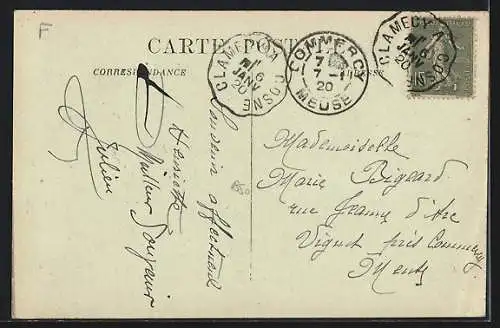 F
CARTE POSTALE
CORRESPONDANCE
ADRESSE
CLAMECY A COSNE
6
JANV
20
COMMERCY
7 - 1
20
MEUSE
CLAMECY A COSNE
6
JANV
20
Souvenir affectueux
Henriette
Meilleur Souvenir
Julien
Mademoiselle
Marie Bigeard
rue Jeanne d'Arc
Vignot près Commercy
Meuse